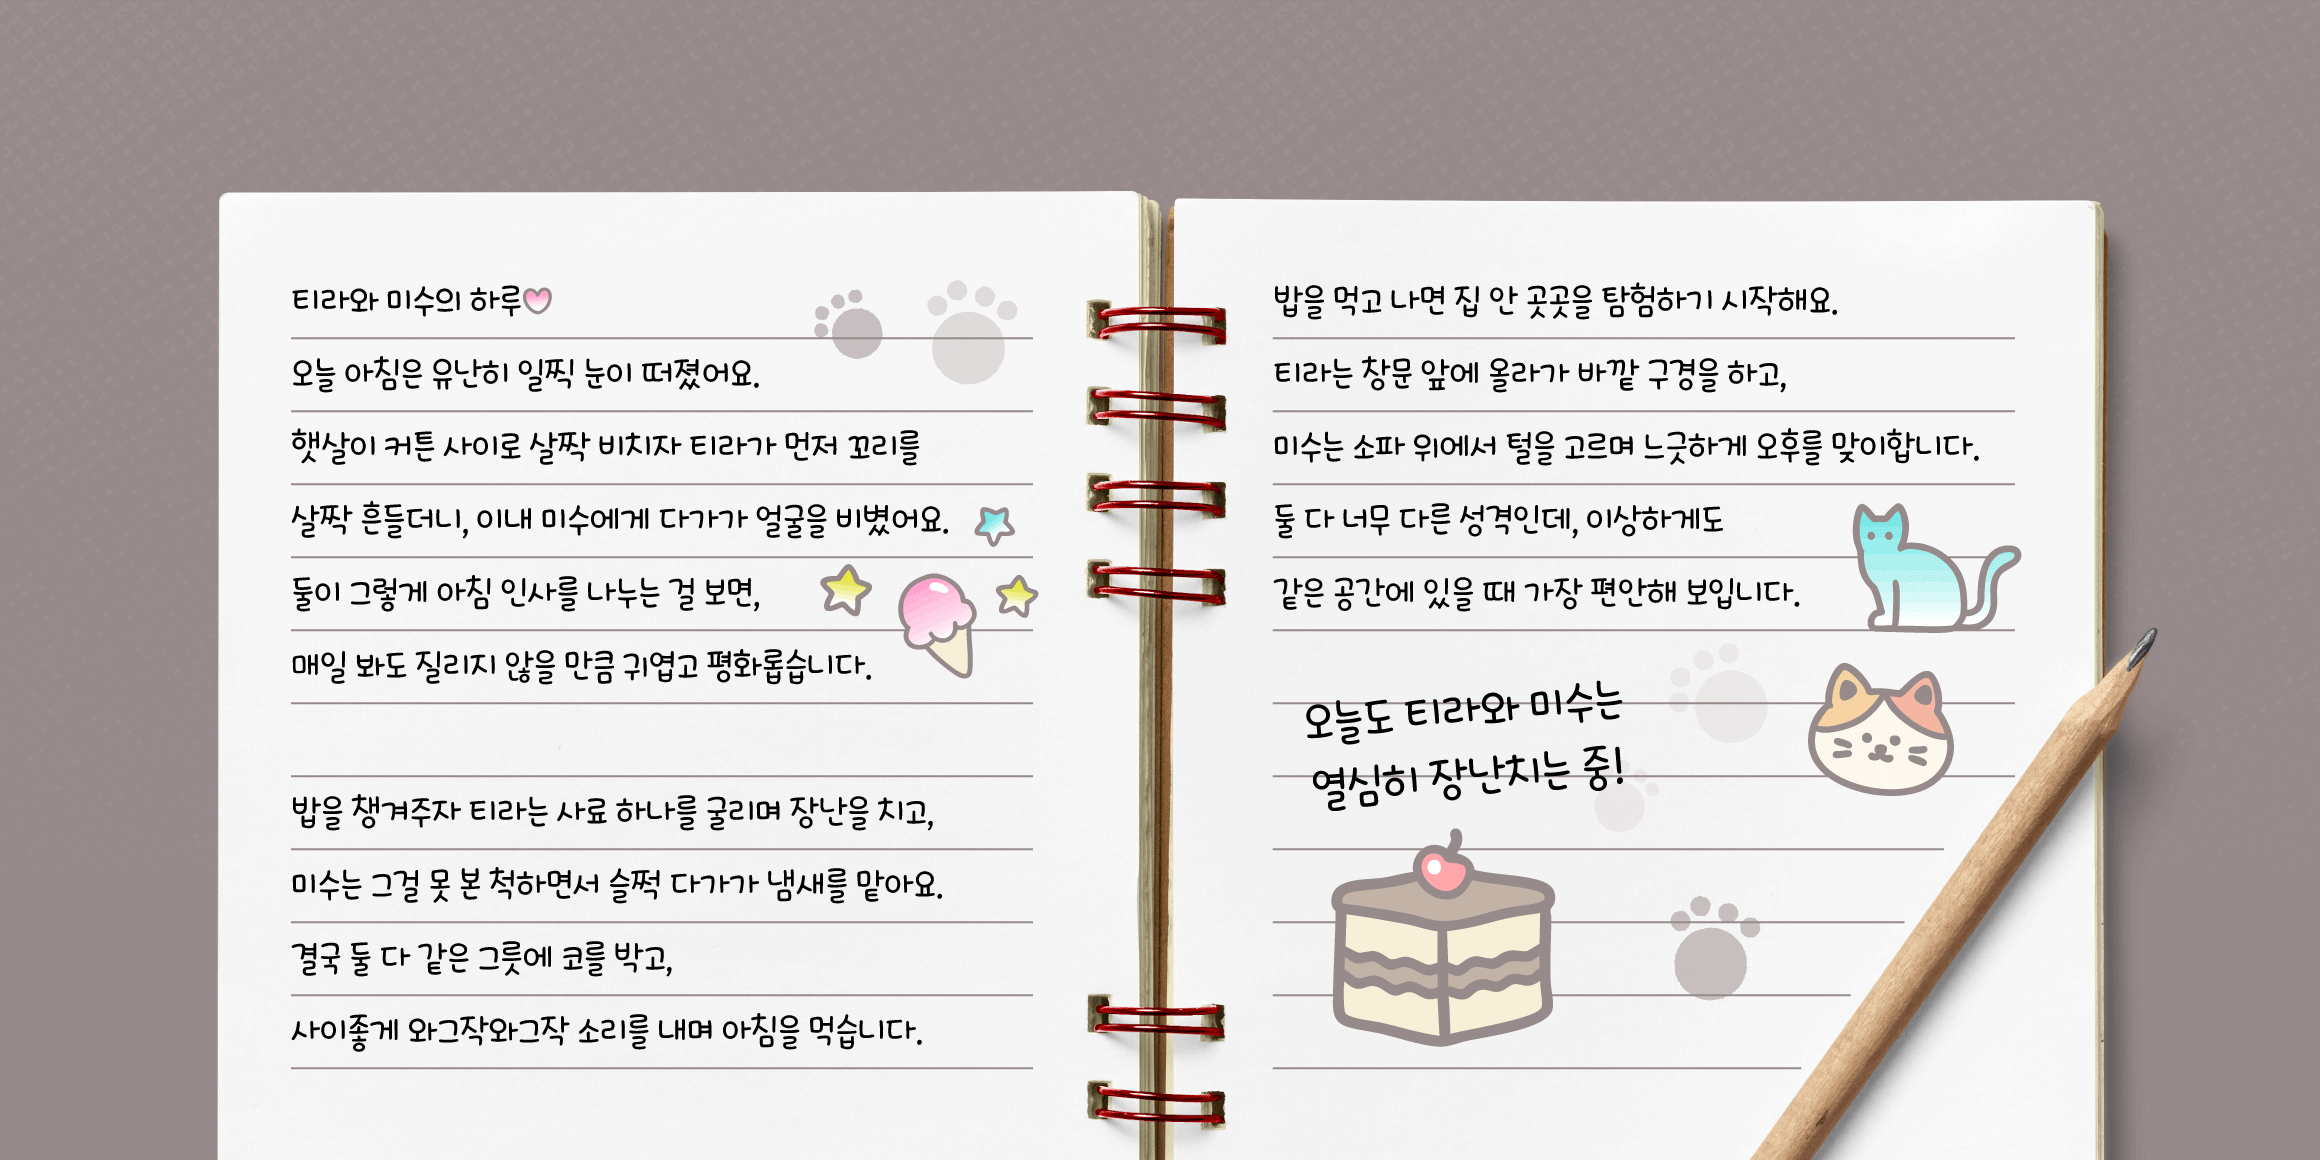 티라와 미수의 하루
오늘 아침은 유난히 일찍 눈이 떠졌어요.
햇살이 커튼 사이로 살짝 비치자 티라가 먼저 꼬리를
살짝 흔들더니, 이내 미수에게 다가가 얼굴을 비볐어요.
둘이 그렇게 아침 인사를 나누는 걸 보면,
매일 봐도 질리지 않을 만큼 귀엽고 평화롭습니다.
밥을 챙겨주자 티라는 사료 하나를 굴리며 장난을 치고,
미수는 그걸 못 본 척하면서 슬쩍 다가가 냄새를 맡아요.
결국 둘 다 같은 그릇에 코를 박고,
사이좋게 와그작와그작 소리를 내며 아침을 먹습니다.
밥을 먹고 나면 집 안 곳곳을 탐험하기 시작해요.
티라는 창문 앞에 올라가 바깥 구경을 하고,
미수는 소파 위에서 털을 고르며 느긋하게 오후를 맞이합니다.
둘 다 너무 다른 성격인데, 이상하게도
같은 공간에 있을 때 가장 편안해 보입니다.
오늘도 티라와 미수는
열심히 장난치는 중!